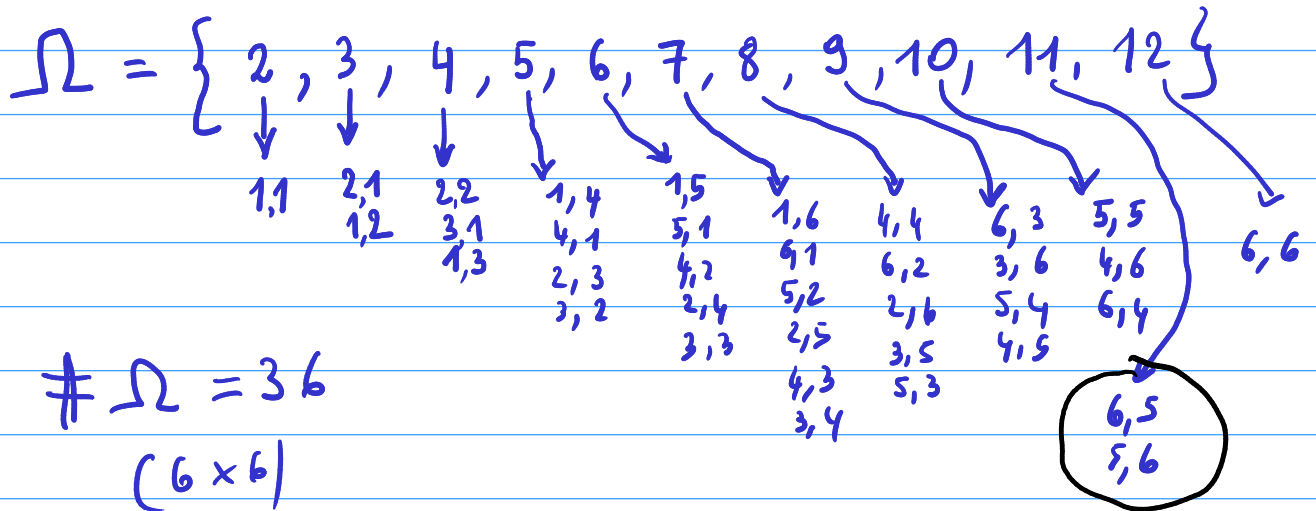 Ω = { 2 , 3 , 4 , 5 , 6 , 7 , 8 , 9 , 10 , 11 , 12 }
1,1
2,1
1,2
2,2
3,1
1,3
1,4
4,1
2,3
3,2
1,5
5,1
4,2
2,4
3,3
1,6
6,1
5,2
2,5
4,3
3,4
4,4
6,2
2,6
3,5
5,3
6,3
3,6
5,4
4,5
5,5
4,6
6,4
6,5
5,6
6,6
# Ω = 36
(6 × 6)